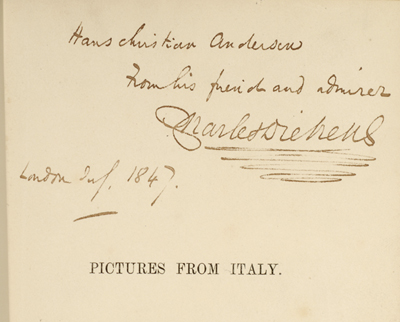 Hans christian Andersen
From his friend and admirer
Charles Dickens
London July. 1847.
PICTURES FROM ITALY.